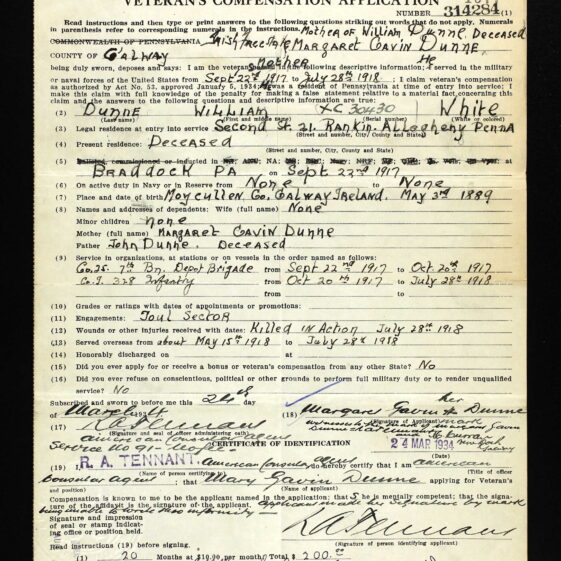 VETERAN'S COMPENSATION APPLICATION
NUMBER 314284 (1)
Read instructions and then type or print answers to the following questions striking out words that do not apply. Numerals
in parenthesis refer to corresponding numerals in the instructions. Mother of William Dunne, Deceased
COMMONWEALTH OF PENNSYLVANIA Irish Free State MARGARET GAVIN DUNNE
COUNTY OF GALWAY Mother He
being duly sworn, deposes and says: I am the veteran described in the following descriptive matter; served in the military
or naval forces of the United States from Sept 22nd 1917 to July 28th 1918; I claim veteran's compensation
as authorized by Act No. 53, approved January 5, 1934; He was a resident of Pennsylvania at time of entry into service; I
make this claim with full knowledge of the penalty for making a false statement relative to a material fact concerning this
claim and the answers to questions and descriptive information are true:
(2) DUNNE WILLIAM XC 30430 White
(Last name) (First and middle names) (Serial number) (White or colored)
(3) Legal residence at entry into service Second St. 21. Rankin. Allegheny Penna
(Street and number, City, County and State)
(4) Present residence: Deceased
(Street and number, City, County and State)
(5) Enlisted, commissioned or inducted in at
BRADDOCK PA on Sept 22nd 1917
(6) On active duty in Navy or in Reserve from None to None
(7) Place and date of birth Moycullen Co. Galway Ireland. May 3rd 1889
(8) Names and addresses of dependents: Wife (full name) None
Minor children none
Mother (full name) MARGARET GAVIN DUNNE
Father John Dunne. Deceased
(9) Service in organizations, at stations or on vessels in the order named as follows:
Co. 25. 7th Bn. Depot Brigade from Sept 22nd 1917 to Oct 20th 1917
Co. I. 328 Infantry from Oct 20th 1917 to July 28th 1918
from to
(10) Grades or ratings with dates of appointments or promotions:
(11) Engagements: Toul Sector
(12) Wounds or other injuries received with dates: Killed in Action July 28th 1918
(13) Served overseas from about May 15th 1918 to July 28th 1918
(14) Honorably discharged on at
(15) Did you ever apply for or receive a bonus or veteran's compensation from any other State? No
(16) Did you ever refuse on conscientious, political or other grounds to perform full military duty or to render unqualified
service? No
Subscribed and sworn to before me this 24th day
of March (18) Margaret Gavin X Dunne her
(17) R A Tennant mark
(Signature and seal of officer administering oath)
American Consular Agent
24 MAR 1934
CERTIFICATION OF IDENTITY (Date)
(19) R. A. TENNANT. American Consular Agent do hereby certify that I am American
(Name of person certifying to) (Title of officer
Consular agent: that Mary Gavin Dunne applying for Veteran's
and position) (Name of applicant)
Compensation is known to me to be the applicant named in the application; that she is mentally competent; that the signa-
ture of the affidavit is the signature of the applicant. Applicant made her signature by mark
being unable to write thro infirmity
Signature and impression R A Tennant
of seal or stamp indicat-
ing office or position held. (Signature of person identifying applicant)
Read instructions (19) before signing.
(1) 20 Months at $10.00 per month/Total $ 200.00